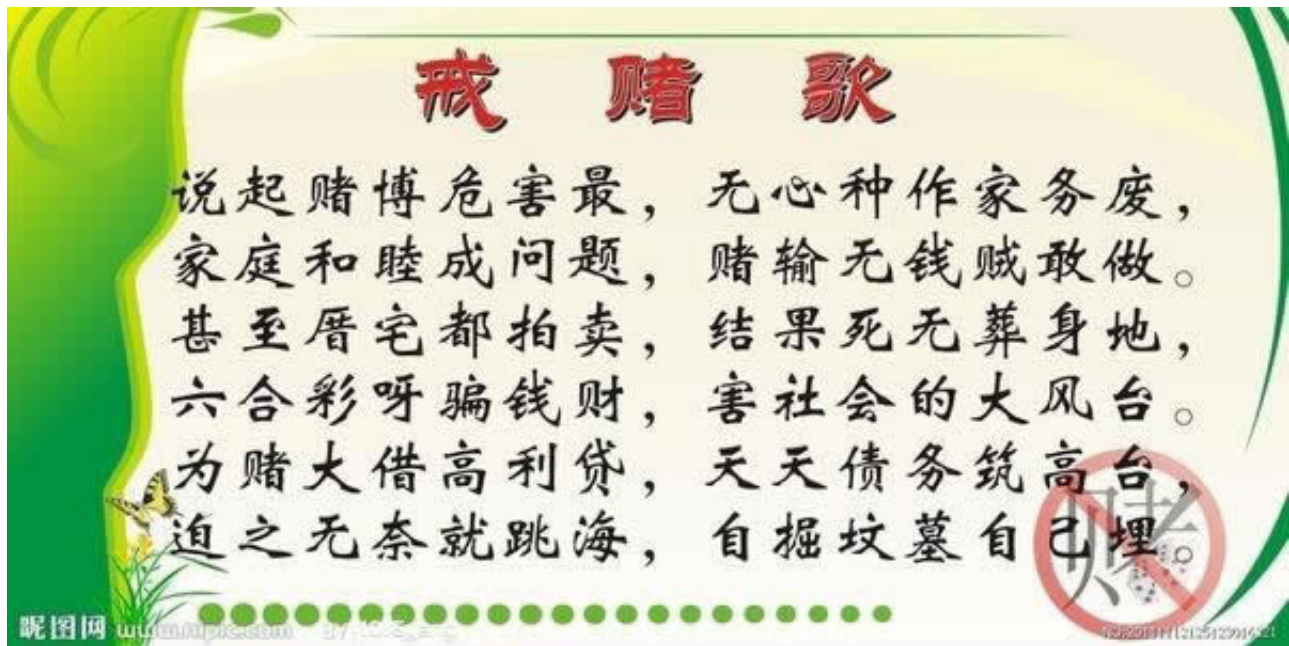 戒 赌 歌
说起赌博危害最，无心种作家务废，
家庭和睦成问题，赌输无钱贼敢做。
甚至厝宅都拍卖，结果死无葬身地，
六合彩呀骗钱财，害社会的大风台。
为赌大借高利贷，天天债务筑高台，
迫之无奈就跳海，自掘坟墓自己埋。
赌
昵图网 www.nipic.com